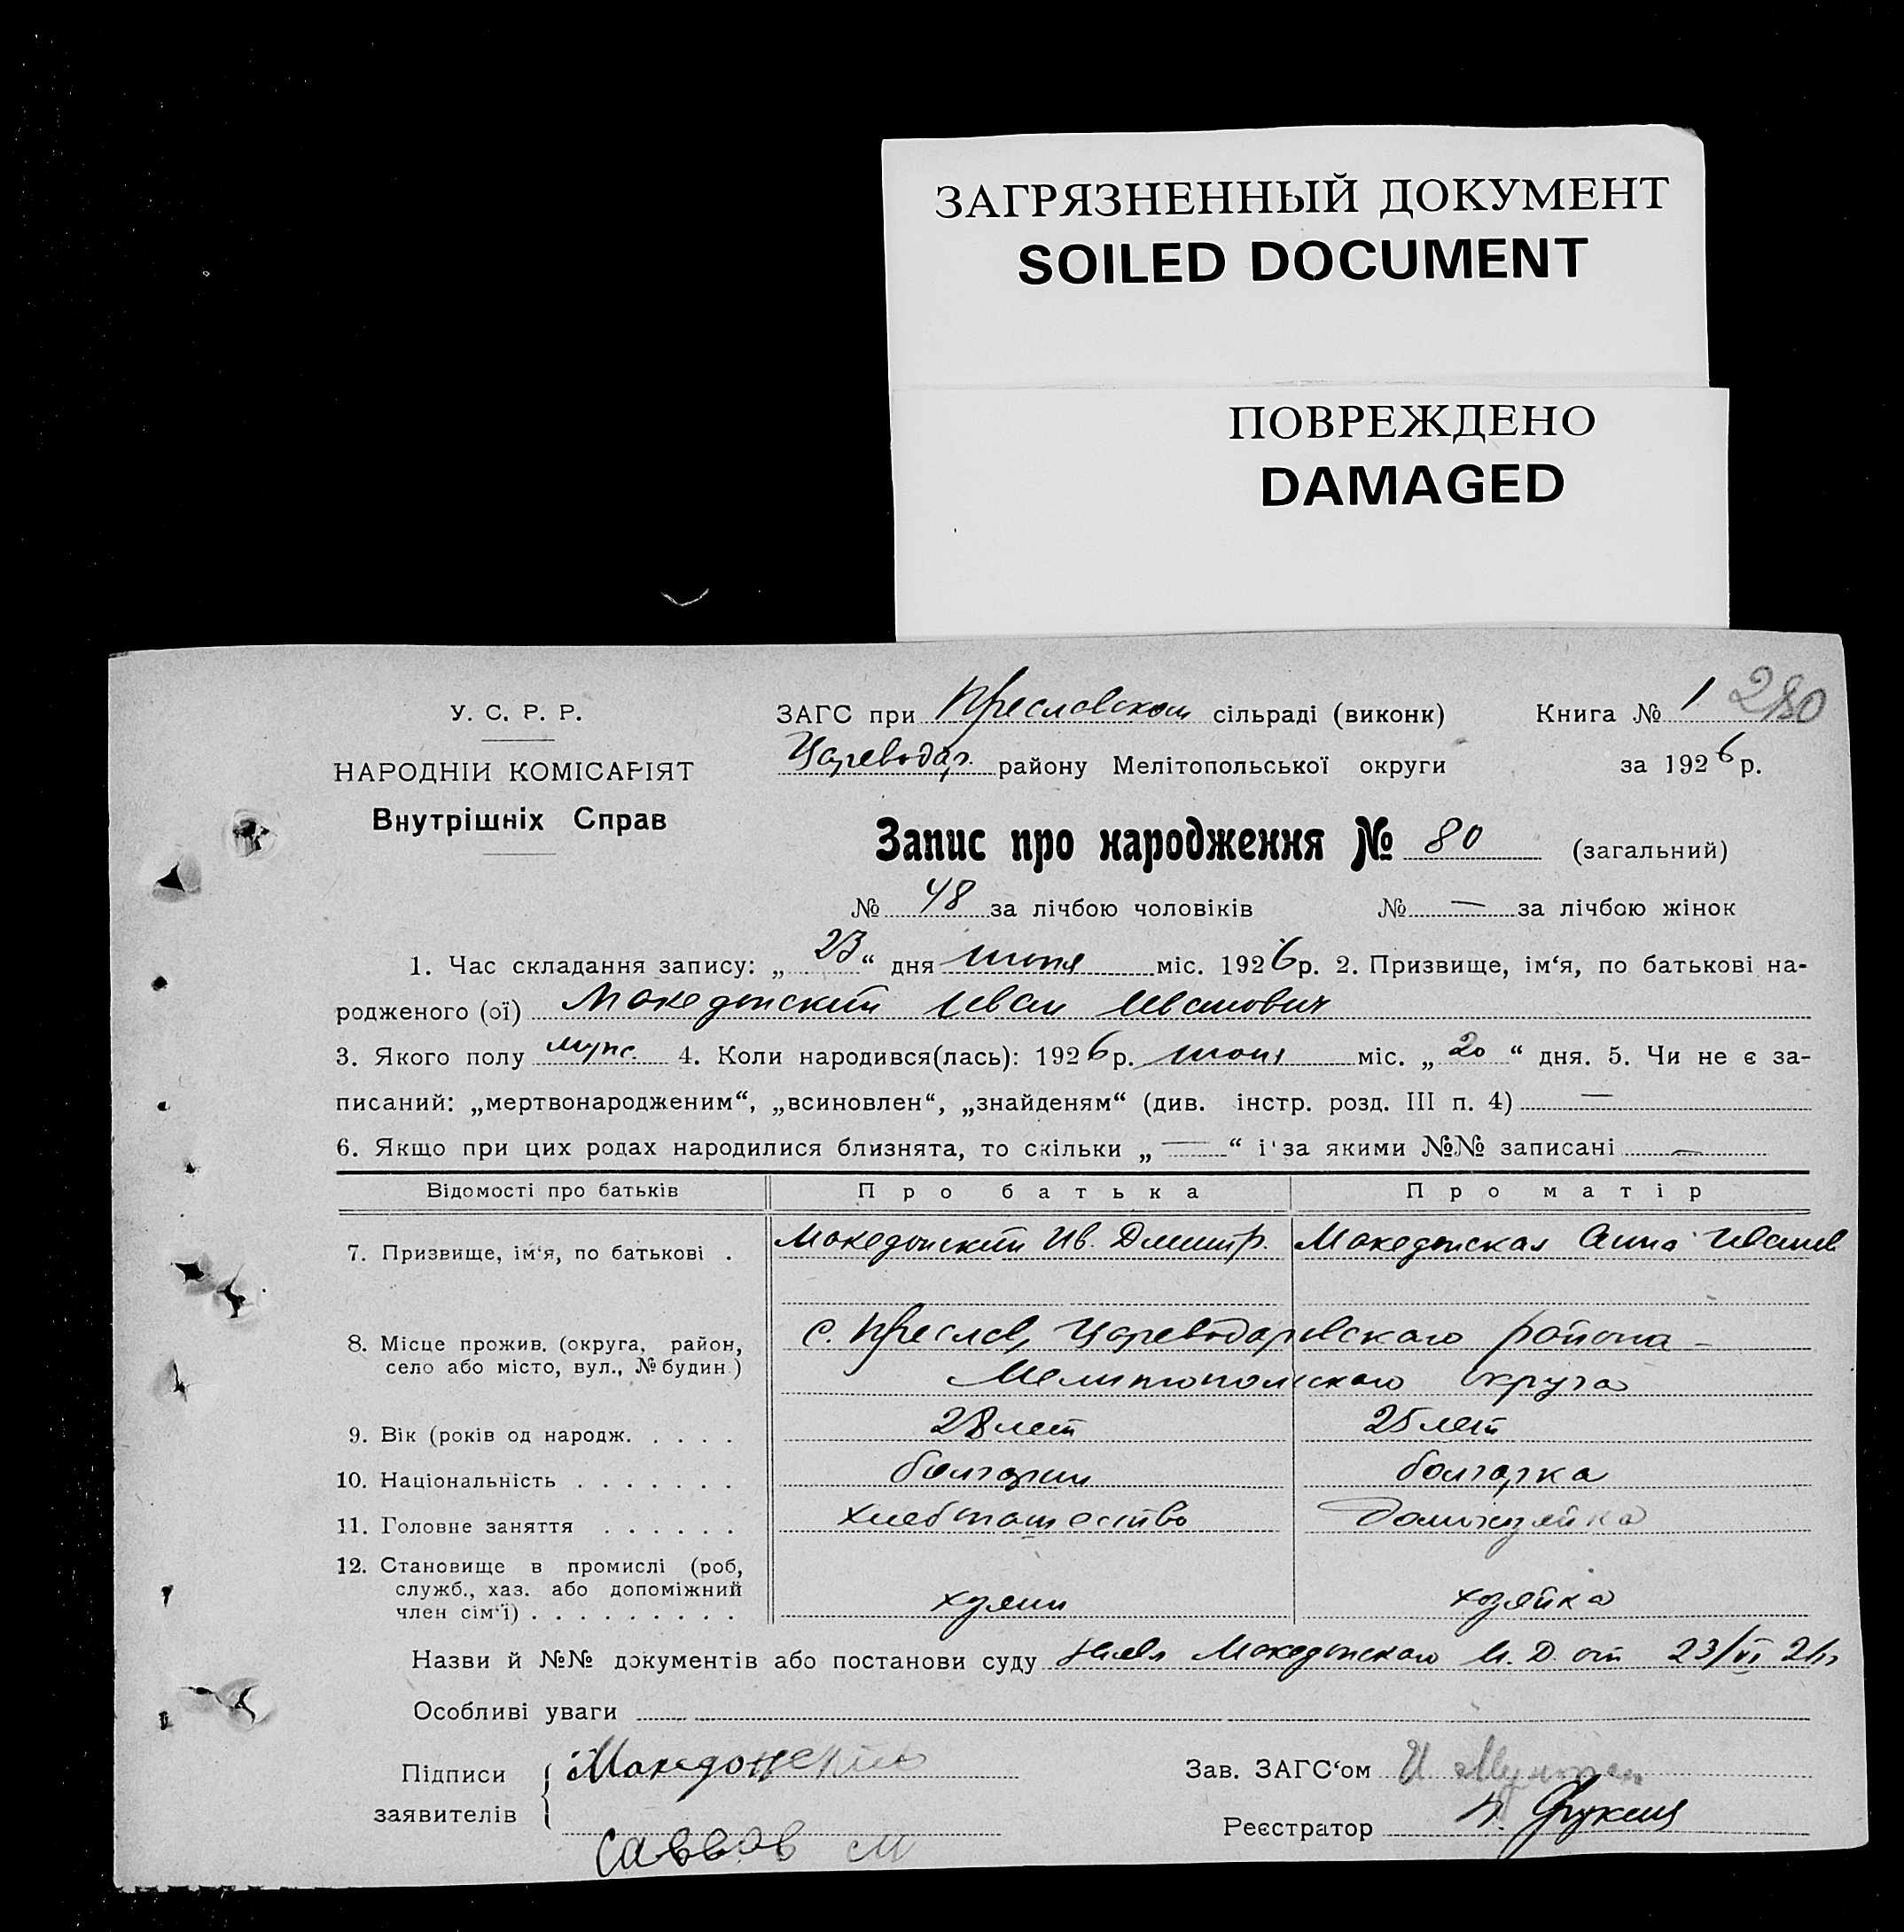 ЗАГРЯЗНЕННЫЙ ДОКУМЕНТ
SOILED DOCUMENT
ПОВРЕЖДЕНО
DAMAGED
У. С. Р. Р.
НАРОДНІИ КОМІСАРІЯТ
Внутрішніх Справ
ЗАГС при Преславском сільраді (виконк) Книга № 1 280
Цареводар. району Мелітопольської округи за 1926 р.
Запис про народження № 80 (загальний)
№ 48 за лічбою чоловіків № — за лічбою жінок
1. Час складання запису: „ 23 “ дня июня міс. 1926 р. 2. Призвище, ім‘я, по батькові на-
родженого (ої) Македонский Иван Иванович
3. Якого полу муж. 4. Коли народився(лась): 1926 р. июня міс. „ 20 “ дня. 5. Чи не є за-
писаний: „мертвонародженим“, „всиновлен“, „знайденям“ (див. інстр. розд. III п. 4) —
6. Якщо при цих родах народилися близнята, то скільки „ — “ і за якими №№ записані —
Відомості про батьків Про батька Про матір
7. Призвище, ім‘я, по батькові . Македонский Ив. Дмитр. Македонская Анна Иванов
8. Місце прожив. (округа, район, село або місто, вул., № будин.) с. Преслав, Цареводаровского района -
Мелитопольского округа
9. Вік (років од народж. . . . . 28 лет 25 лет
10. Національність . . . . . . . болгарин болгарка
11. Головне заняття . . . . . . хлебопашество Домохозяйка
12. Становище в промислі (роб, служб., хаз. або допоміжний член сім‘ї) . . . . . . . . . хозяин хозяйка
Назви й №№ документів або постанови суду Македонского И. Д. от 23/VI
Особливі уваги
Підписи заявителів Македонский
Саввов М
Зав. ЗАГС‘ом И
Реєстратор